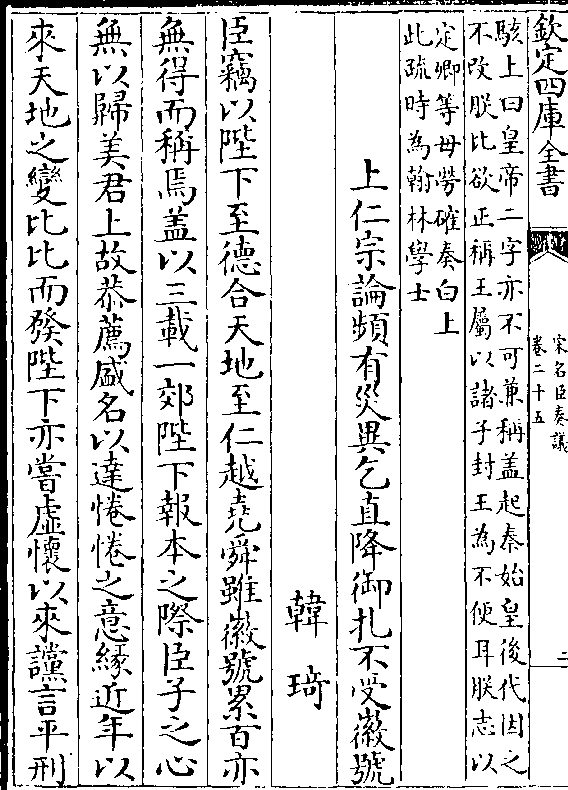 欽定四庫全書
宋名臣奏議
卷二十五
二
駭上曰皇帝二字亦不可兼稱盖起秦始皇後代因之
不改朕比欲正稱王屬以諸子封王為不便耳朕志以
定卿等毋勞確奏白上
此疏時為翰林學士
上仁宗論頻有災異乞直降御札不受徽號
韓琦
臣竊以陛下至德合天地至仁越堯舜雖徽號累百亦
無得而稱焉盖以三載一郊陛下報本之際臣子之心
無以歸美君上故恭薦盛名以達惓惓之意緣近年以
來天地之變比比而發陛下亦嘗虛懷以來讜言平刑